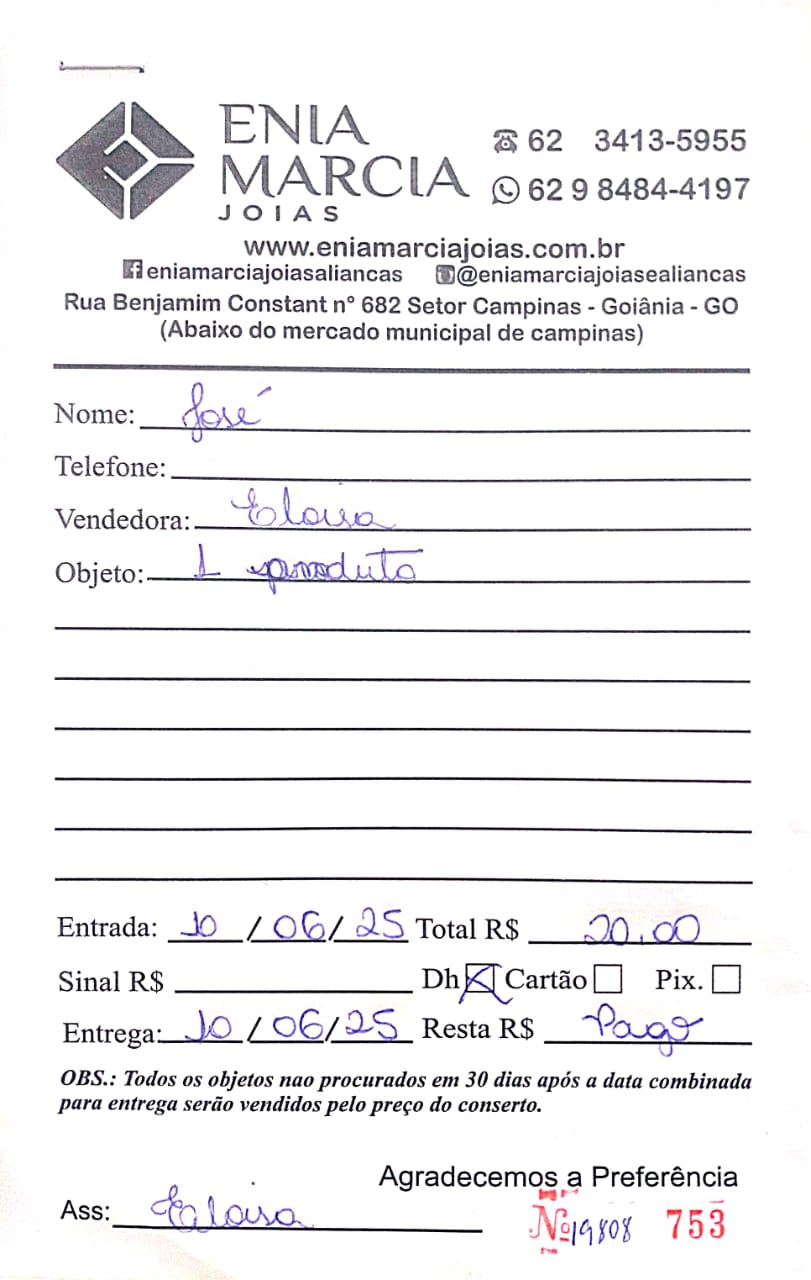 ENIA
MARCIA
JOIAS
62 3413-5955
62 9 8484-4197
www.eniamarciajoias.com.br
eniamarciajoiasaliancas @eniamarciajoiasealiancas
Rua Benjamim Constant nº 682 Setor Campinas - Goiânia - GO
(Abaixo do mercado municipal de campinas)
Nome: José
Telefone:
Vendedora: Eloisa
Objeto: 1 produto
Entrada: 10 / 06 / 25 Total R$ 20,00
Sinal R$ Dh Cartão Pix.
Entrega: 10 / 06 / 25 Resta R$ Pago
OBS.: Todos os objetos nao procurados em 30 dias após a data combinada
para entrega serão vendidos pelo preço do conserto.
Agradecemos a Preferência
Ass: Eloisa
Nº 19808 753